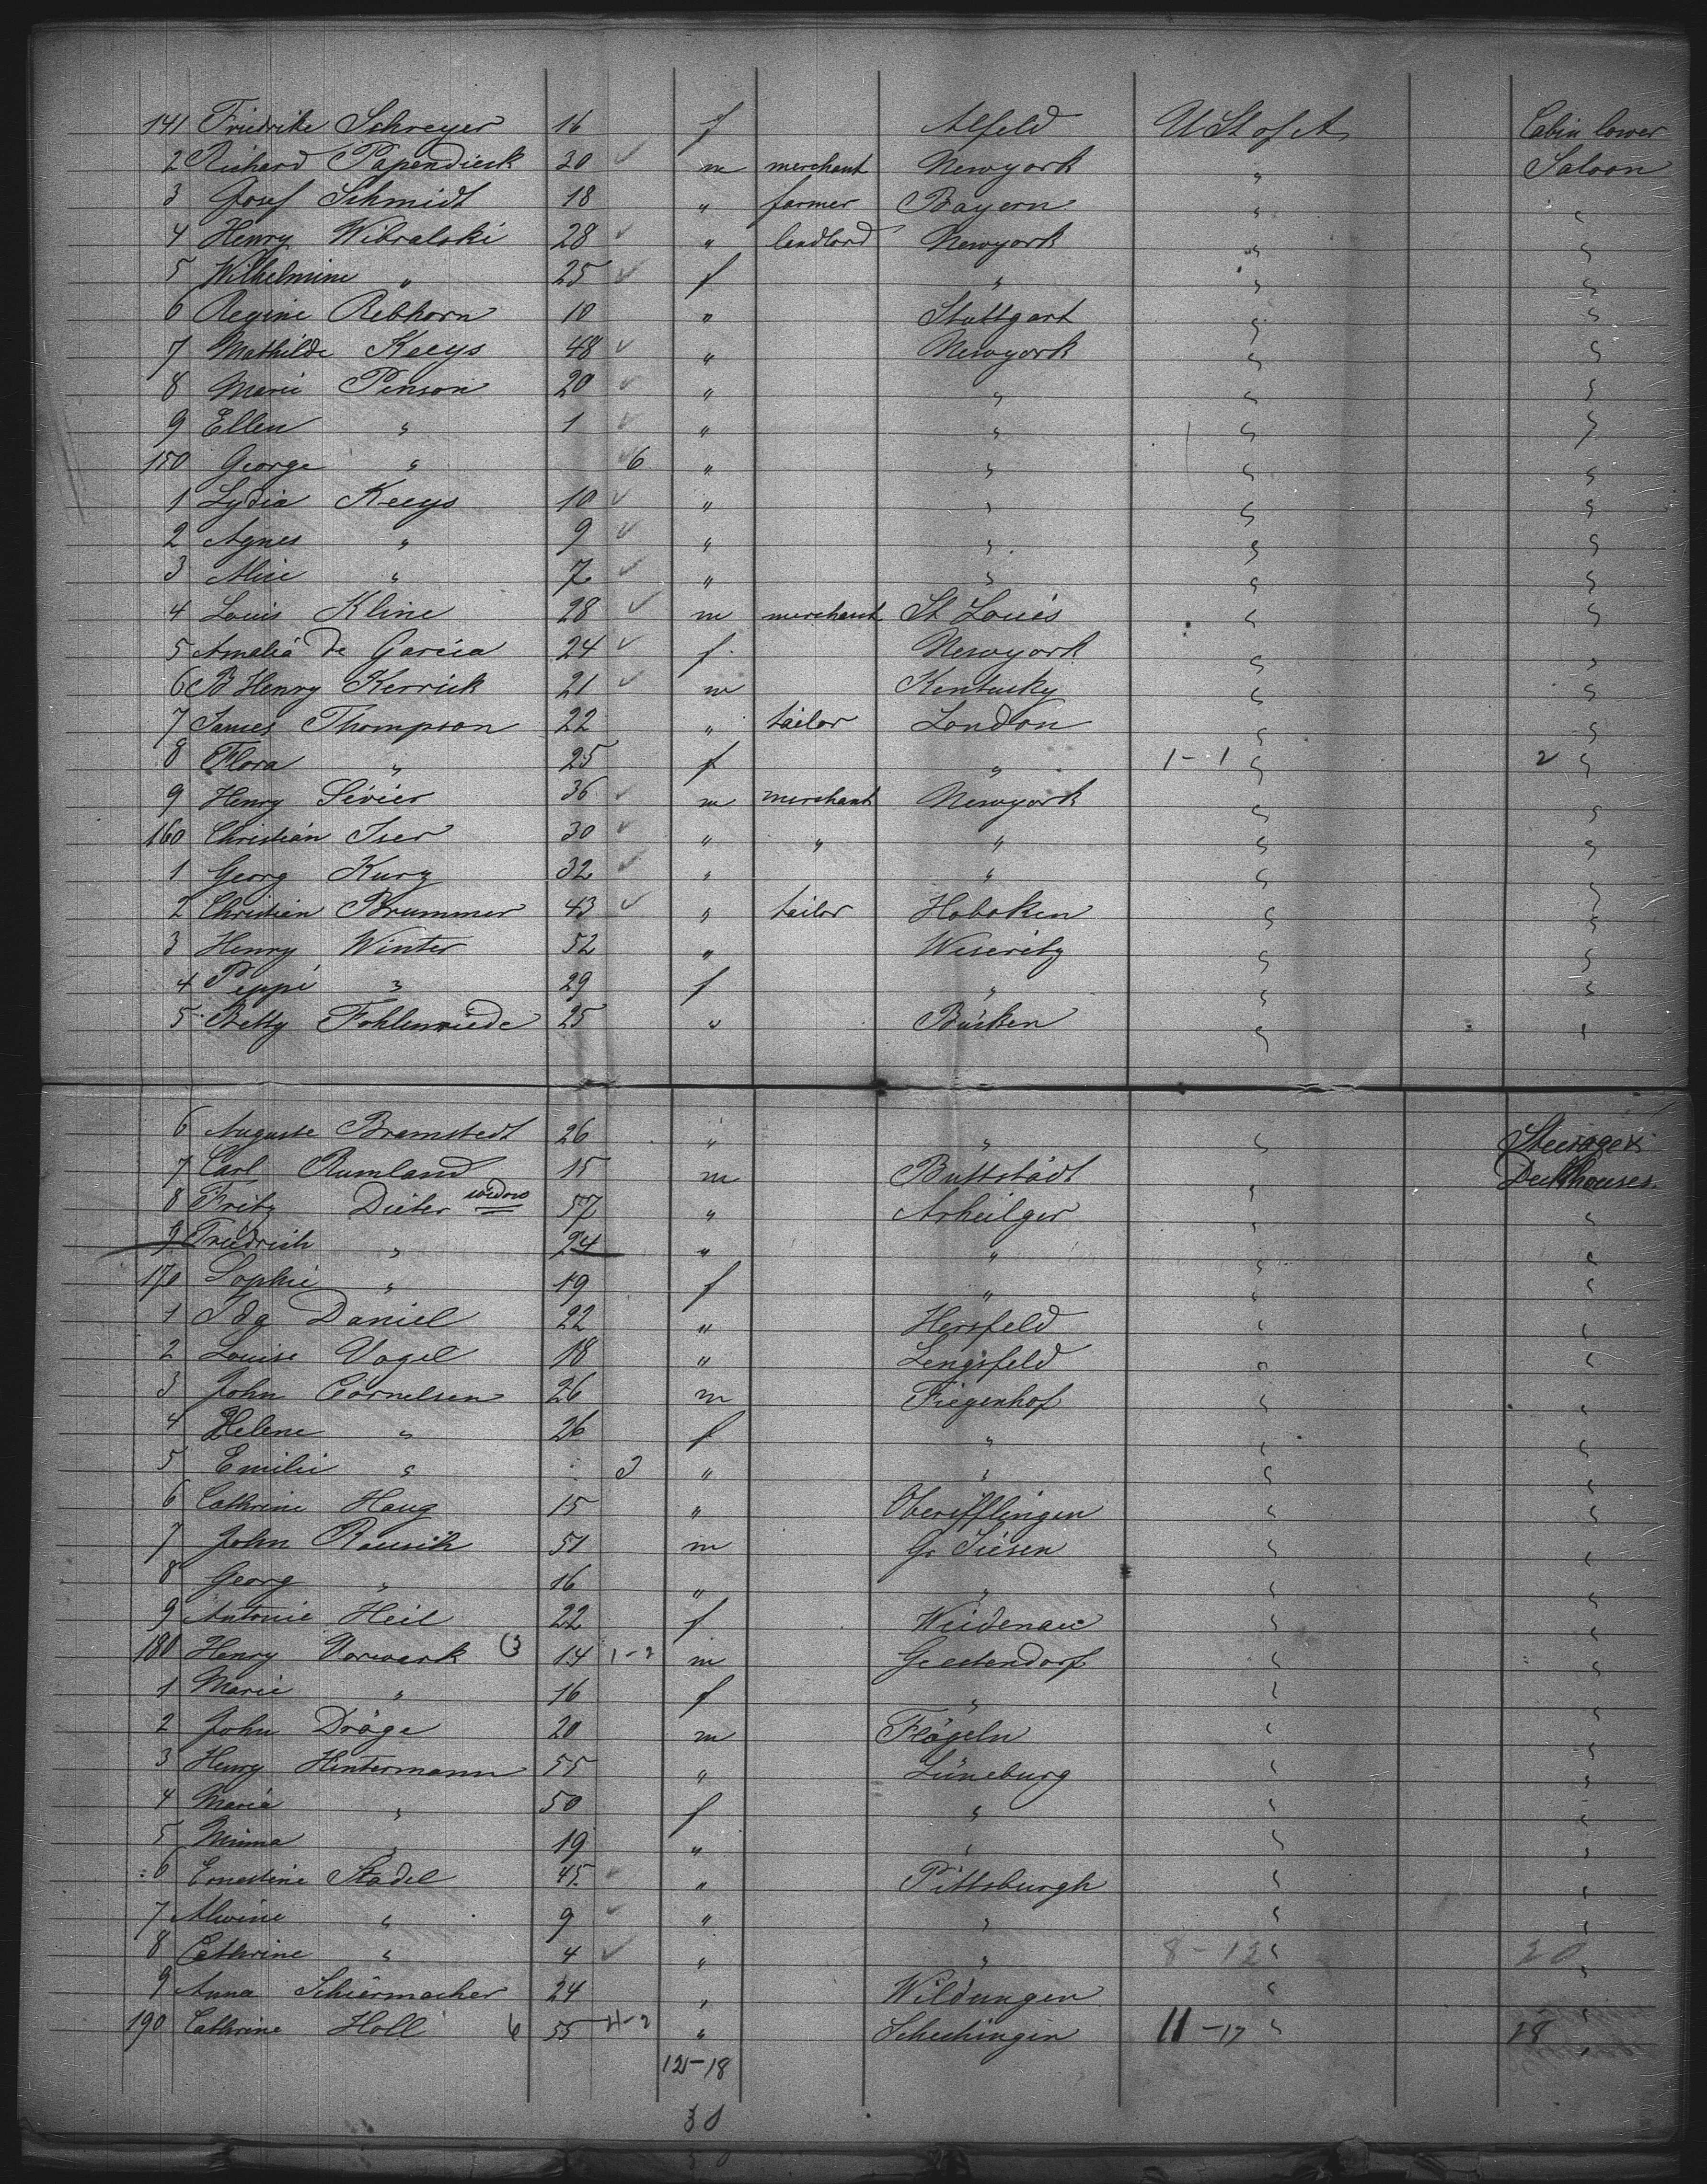 141 Friedrike Schreyer 16 f Alfeld U St of A Cabin lower
2 Richard Papendieck 30 ✓ m merchant Newyork " Saloon
3 Josef Schmidt 18 " farmer Bayern " "
4 Henry Wibralski 28 ✓ " landlord Newyork " "
5 Wilhelmine " 25 ✓ f " " "
6 Regine Rebhorn 10 " Stuttgart " "
7 Mathilde Keeys 48 ✓ " Newyork " "
8 Marie Penson 20 ✓ " " " "
9 Ellen " 1 ✓ " " " "
150 George " 6 " " " "
1 Lydia Keeys 10 ✓ " " " "
2 Agnes " 9 ✓ " " " "
3 Alice " 7 ✓ " " " "
4 Louis Kline 28 ✓ m merchant St Louis " "
5 Amalia de Garcia 24 ✓ f Newyork " "
6 B Henry Kerrick 21 ✓ m Kentucky " "
7 James Thompson 22 " tailor London " "
8 Flora " 25 f " 1-1 " 2 "
9 Henry Sévier 36 ✓ m merchant Newyork " "
160 Christian Iser 30 ✓ " " " " "
1 Georg Kurz 32 ✓ " " " "
2 Christian Brummer 43 ✓ " tailor Hoboken " "
3 Henry Winter 52 " Weseritz " "
4 Peppi " 29 f " " "
5 Betty Fohlenwiede 25 " Bücken " "
6 Auguste Bramstedt 26 " " " Steerage &
7 Carl Rumland 15 m Buttstädt " Deckhouses
8 Fritz Dieter widow 57 " Arheilger " "
9 Friedrich " 24 " " " "
170 Sophie " 19 f " " "
1 Ida Daniel 22 " Hersfeld " "
2 Louise Vogel 18 " Lengsfeld " "
3 John Cornelsen 26 m Tiegenhof " "
4 Helene " 26 f " " "
5 Emilie " 3 " " " "
6 Cathrine Haug 15 " Oberifflingen " "
7 John Rausch 51 m Gr Siesen " "
8 Georg " 16 " " " "
9 Antonie Heil 22 f Weidenau " "
180 Henry Vorwerk 3 14 1-2 m Geestendorf " "
1 Marie " 16 f " " "
2 John Dröge 20 m Flögeln " "
3 Henry Hintermann 55 " Lüneburg " "
4 Maria " 50 f " " "
5 Minna " 19 " " " "
6 Ernestine Stadel 45 ✓ " Pittsburgh " "
7 Alwine " 9 ✓ " " " "
8 Cathrine " 4 ✓ " " 8-12 " 20 "
9 Anna Schiermacher 24 " Wildungen " "
190 Cathrine Holl 6 55 4-2 " Schechingen 11-17 " 28 "
12-18
30